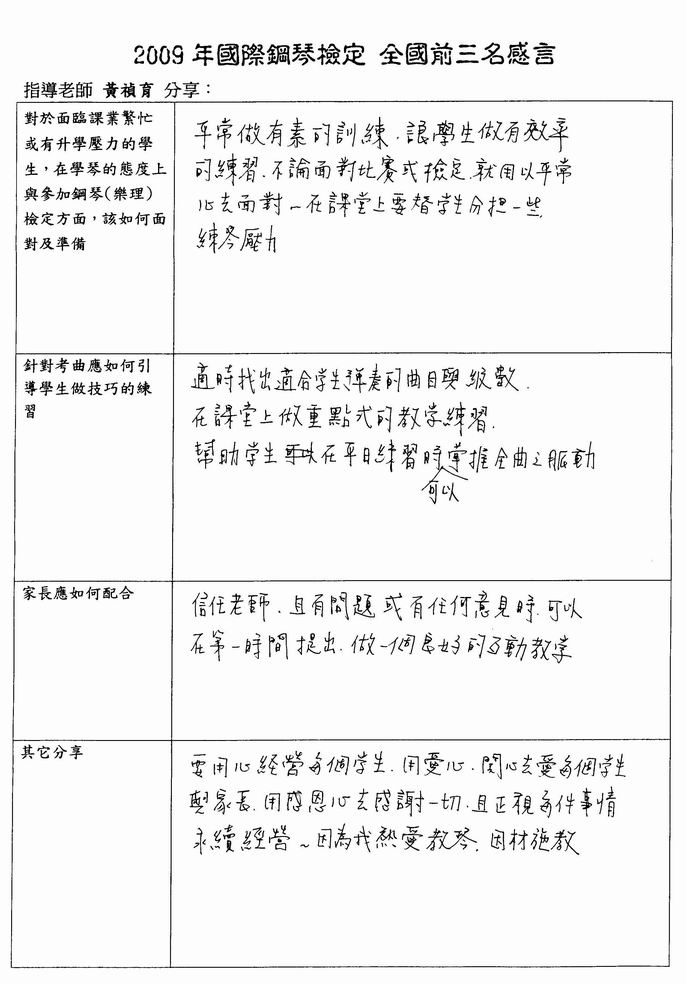 2009 年國際鋼琴檢定 全國前三名感言
指導老師 黃禎育 分享：
對於面臨課業繁忙
或有升學壓力的學
生，在學琴的態度上
與參加鋼琴(樂理)
檢定方面，該如何面
對及準備
平常做有素的訓練、讓學生做有效率
的練習、不論面對比賽或檢定、就用以平常
心去面對~在課堂上要替學生分担一些
練琴壓力
針對考曲應如何引
導學生做技巧的練
習
適時找出適合学生弹奏的曲目與級數.
在課堂上做重點式的教学練習.
幫助学生 在平日練習時掌握全曲之脈動
可以
家長應如何配合
信任老師、且有問題或有任何意見時、可以
在第一時間提出、做一個良好的互動教学
其它分享
要用心經營每個学生、用愛心、関心去愛每個学生
與家長、用感恩心去感謝一切、且正視每件事情
永續經營~因為我熱愛教琴、因材施教